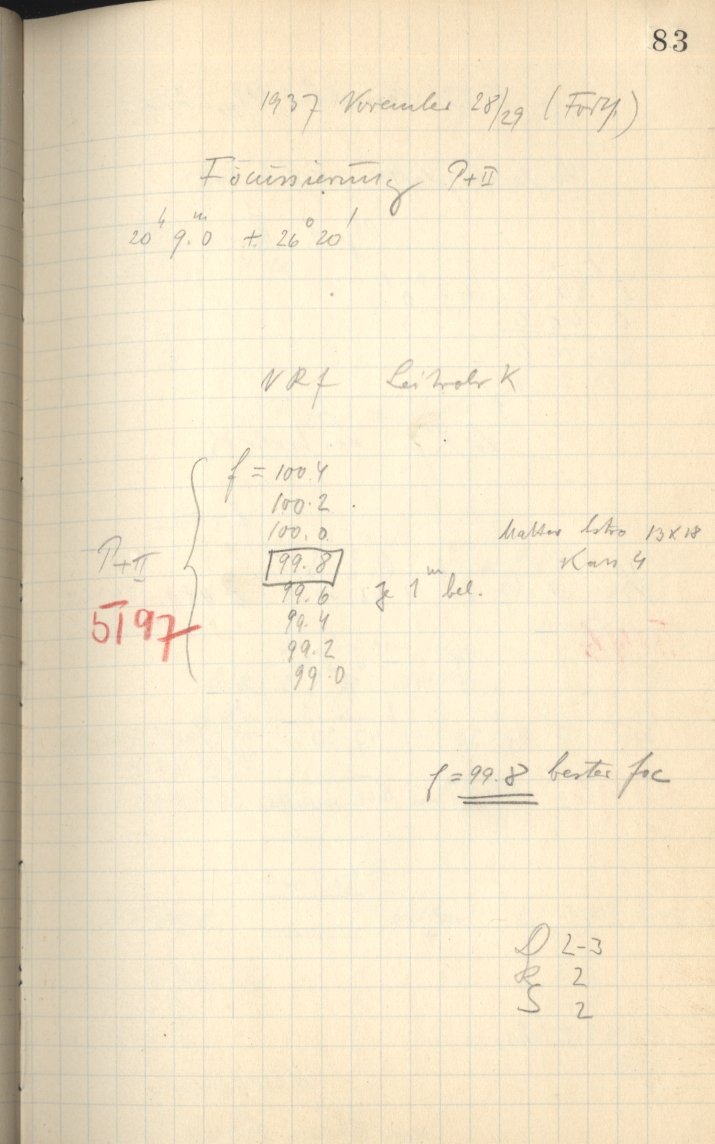 83
1937 November 28/29 (Forts.)
Focussierung P+II
20ʰ 9ᵐ.0 + 26° 20'
NRf Leitrohr K
f = 100.4
100.2
100.0
99.8
99.6 je 1ᵐ bel.
99.4
99.2
99.0
P+II
5197
Astro 13x18
Kass 4
f = 99.8 bester foc
D 2-3
R 2
S 2